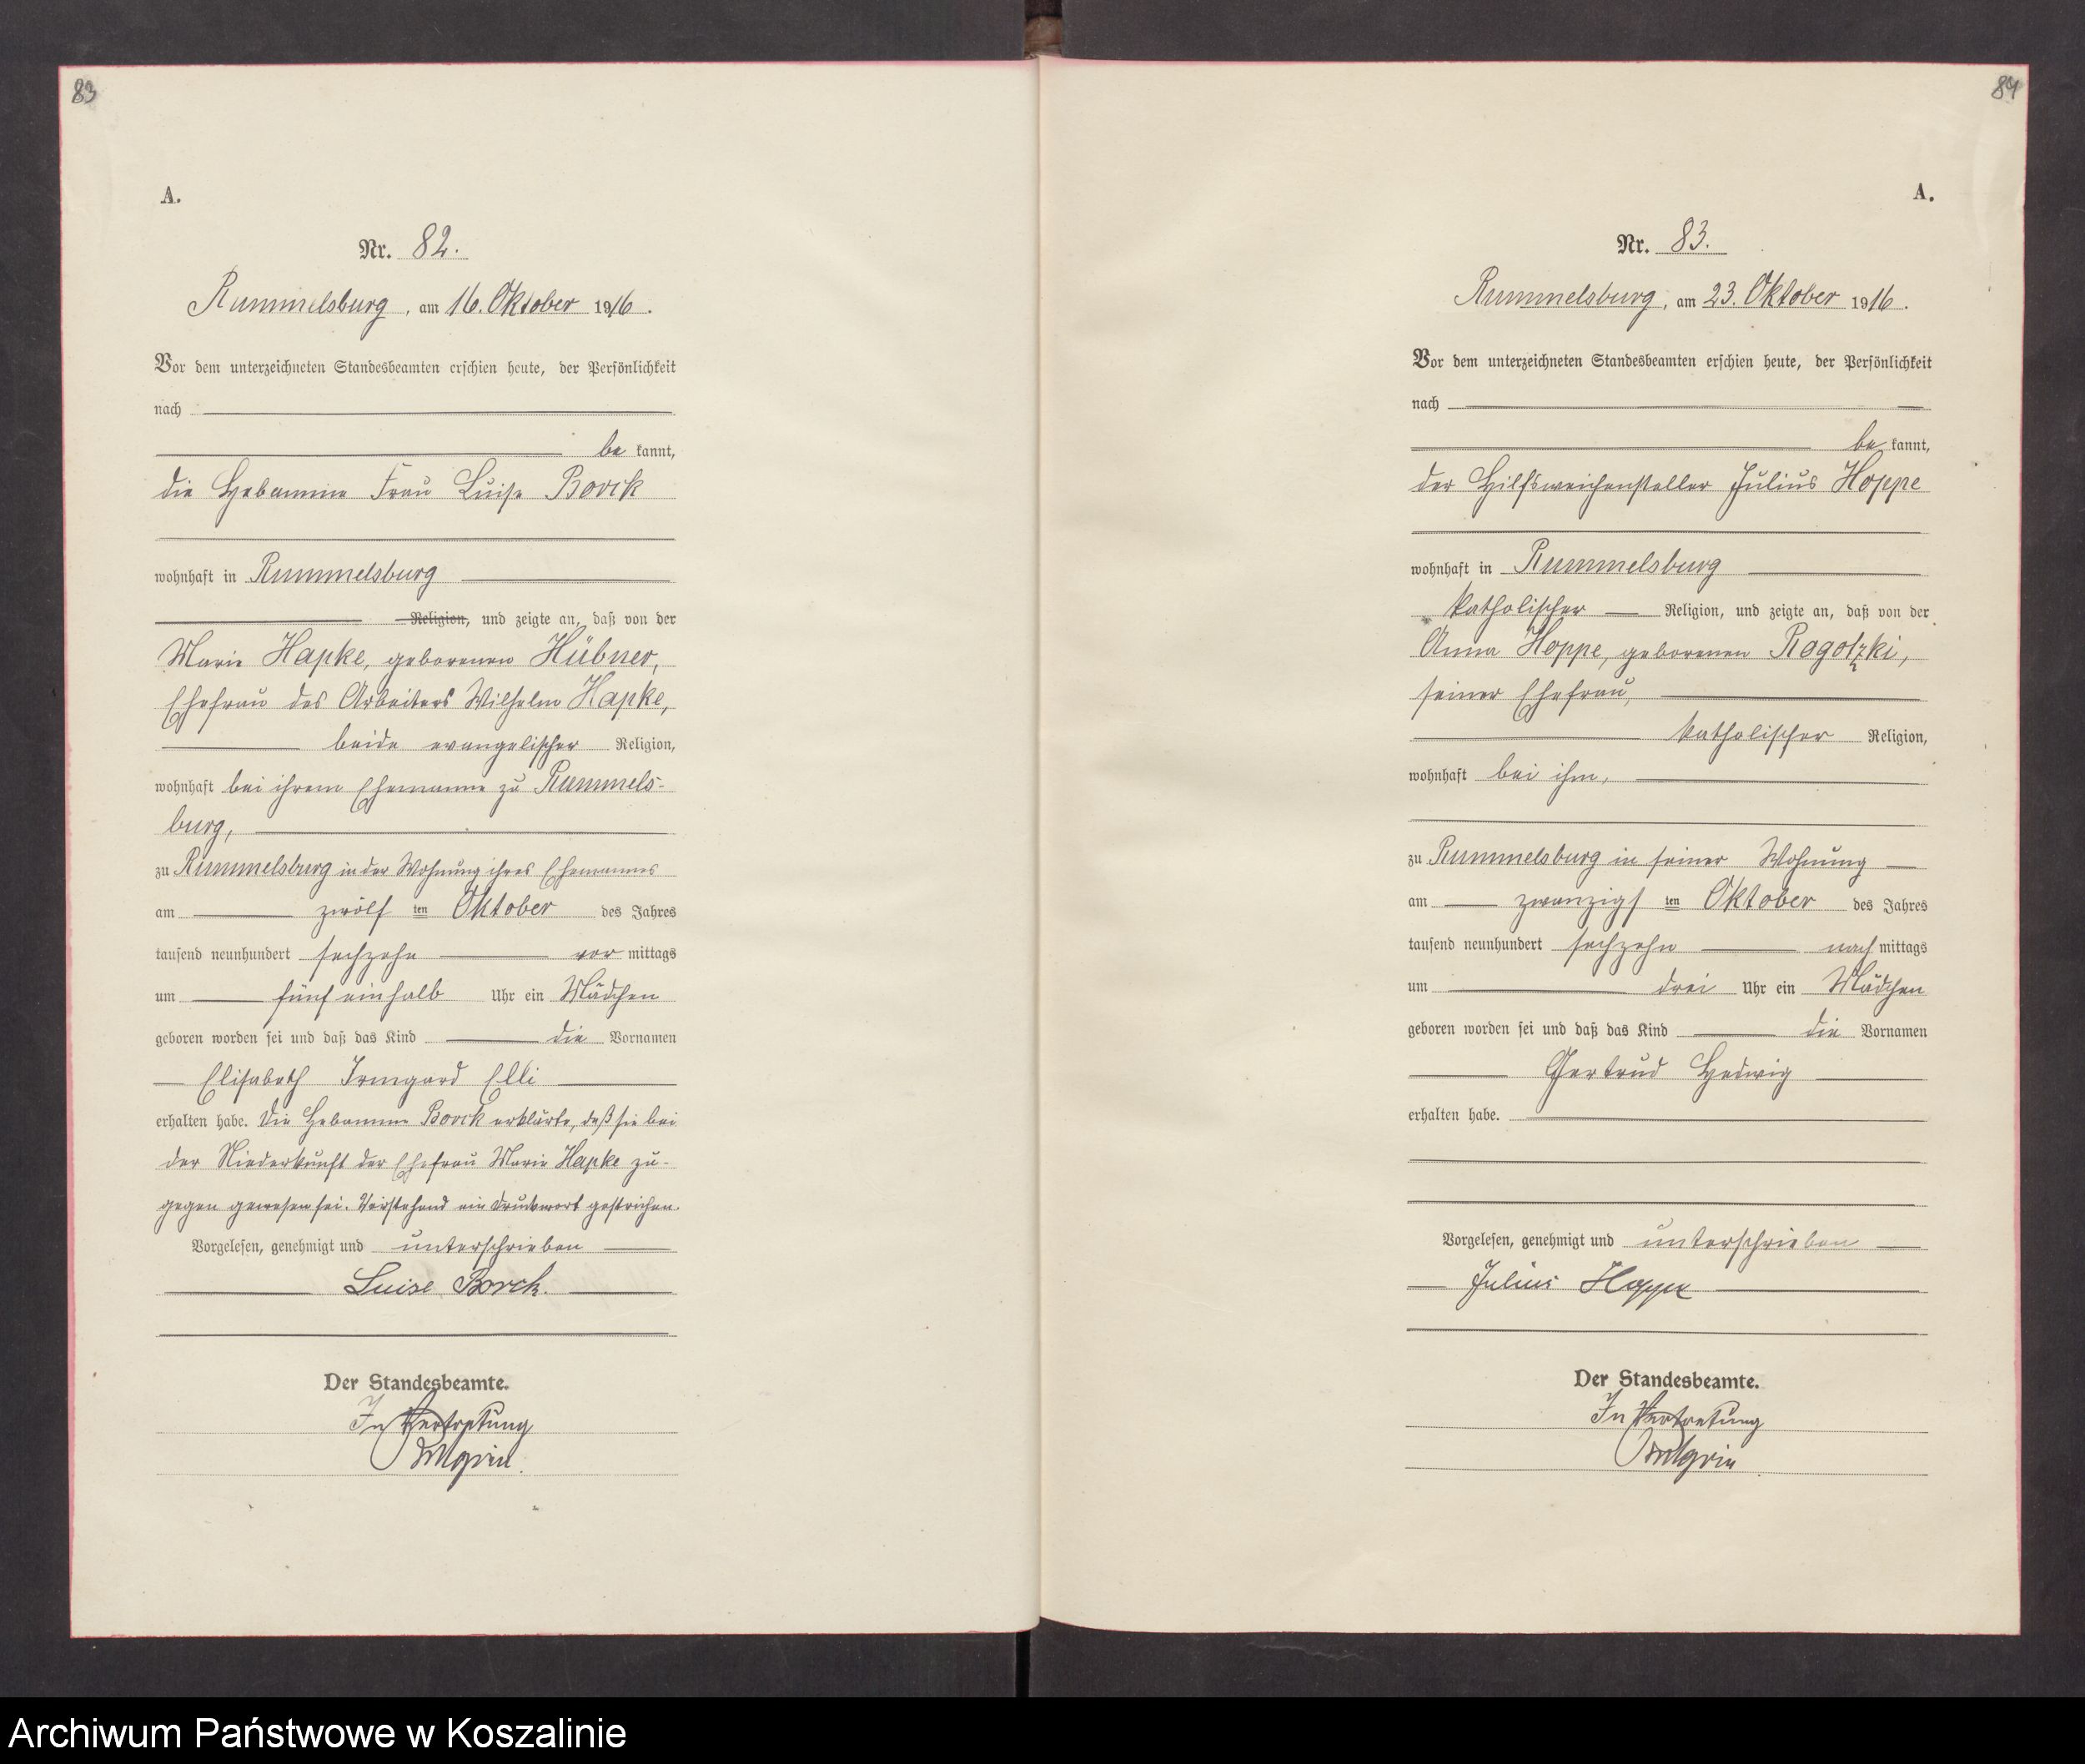 83
A.
Nr. 82.
Rummelsburg, am 16. Oktober 1916.
Vor dem unterzeichneten Standesbeamten erschien heute, der Persönlichkeit
nach
be kannt,
die Hebamme Frau Luise Borck
wohnhaft in Rummelsburg
Religion, und zeigte an, daß von der
Marie Hapke, geborenen Hübner,
Ehefrau des Arbeiters Wilhelm Hapke,
beide evangelischer Religion,
wohnhaft bei ihrem Ehemanne zu Rummels-
burg,
zu Rummelsburg in der Wohnung ihres Ehemannes
am zwölf ten Oktober des Jahres
tausend neunhundert sechzehn vor mittags
um fünf einhalb Uhr ein Mädchen
geboren worden sei und daß das Kind die Vornamen
Elisabeth Irmgard Elli
erhalten habe. Die Hebamme Borck erklärte, daß sie bei
der Niederkunft der Ehefrau Marie Hapke zu-
gegen gewesen sei. Vorstehend ein Druckwort gestrichen.
Vorgelesen, genehmigt und unterschrieben
Luise Borck.
Der Standesbeamte.
In Vertretung
84
A.
Nr. 83.
Rummelsburg, am 23. Oktober 1916.
Vor dem unterzeichneten Standesbeamten erschien heute, der Persönlichkeit
nach
be kannt,
der Hilfsweichensteller Julius Hoppe
wohnhaft in Rummelsburg
katholischer Religion, und zeigte an, daß von der
Anna Hoppe, geborenen Rogotzki,
seiner Ehefrau,
katholischer Religion,
wohnhaft bei ihm,
zu Rummelsburg in seiner Wohnung
am zwanzigs ten Oktober des Jahres
tausend neunhundert sechzehn nach mittags
um drei Uhr ein Mädchen
geboren worden sei und daß das Kind die Vornamen
Gertrud Hedwig
erhalten habe.
Vorgelesen, genehmigt und unterschrieben
Julius Hoppe
Der Standesbeamte.
In Vertretung
Archiwum Państwowe w Koszalinie